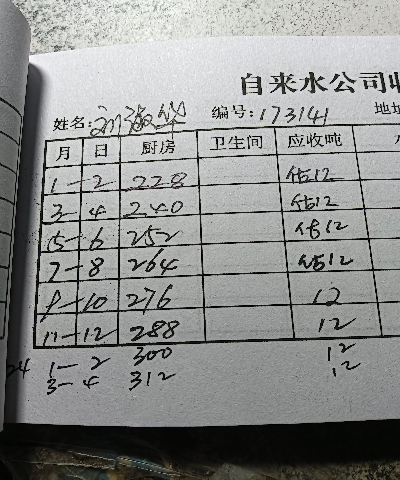 自来水公司收
姓名: 编号:173141 地址
月 日 厨房 卫生间 应收吨 水
1-2 228 估12
3-4 240 估12
5-6 252 估12
7-8 264 估12
9-10 276 12
11-12 288 12
24 1-2 300 12
3-4 312 12